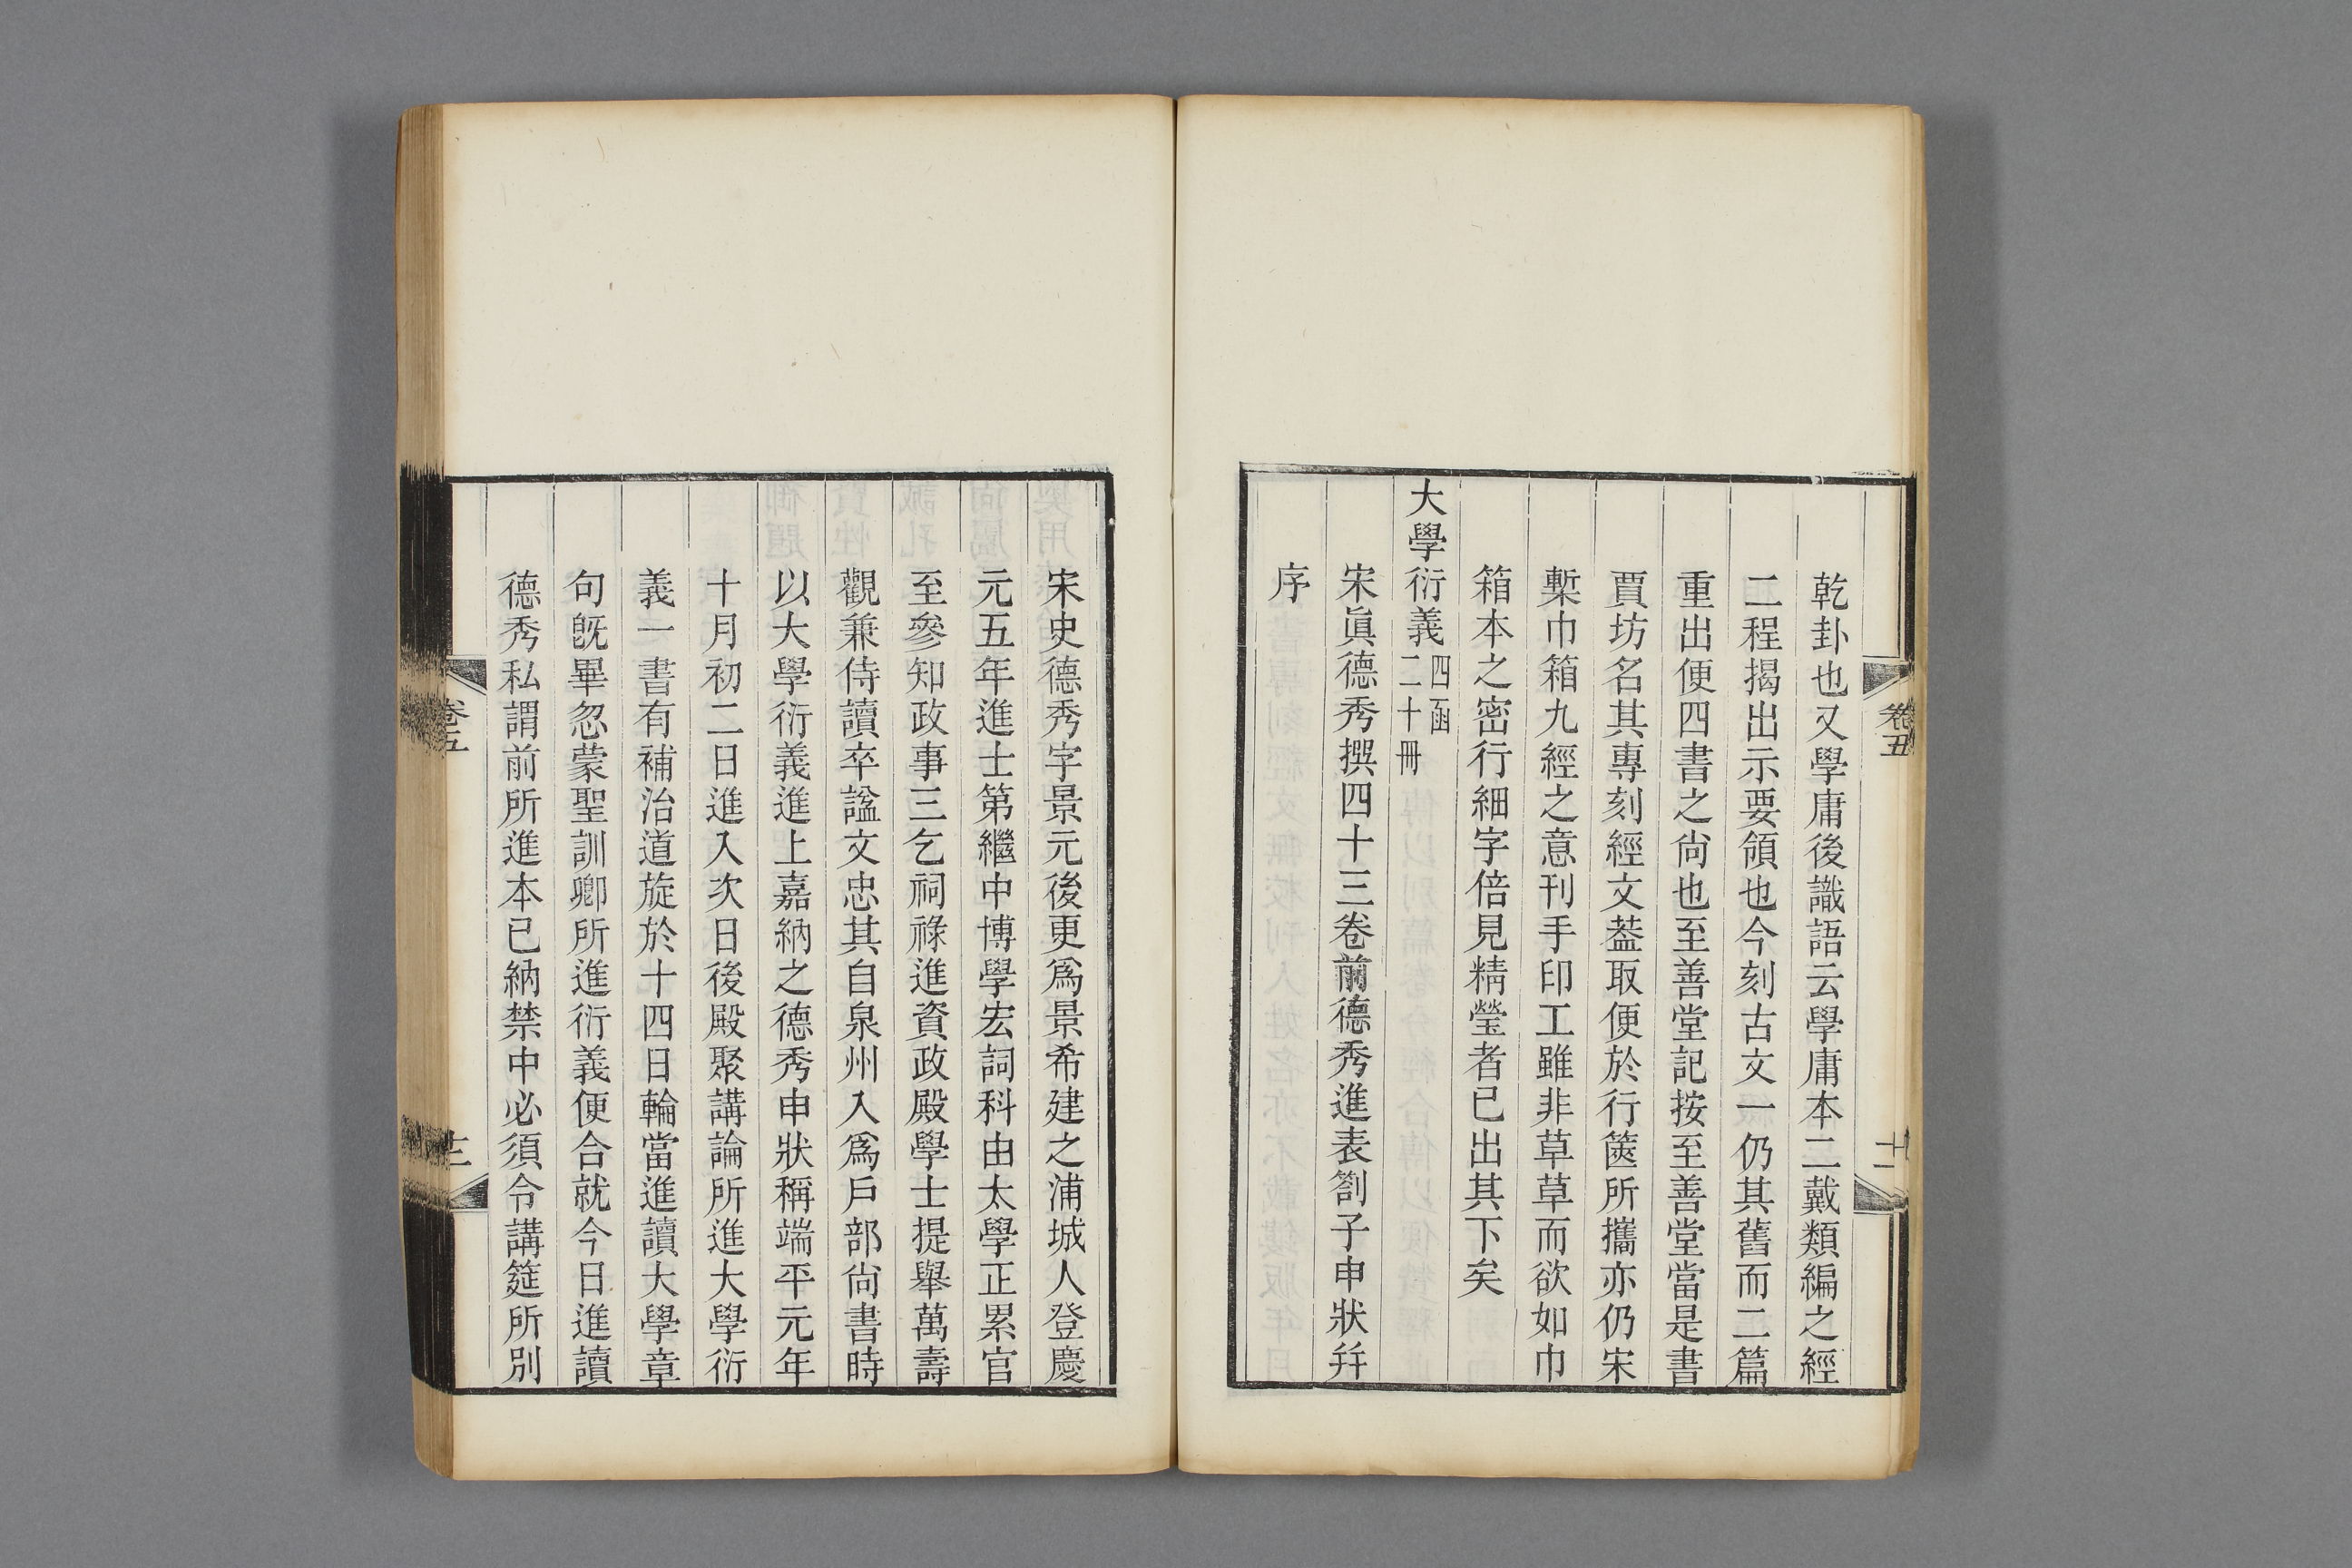 乾卦也又學庸後識語云學庸本二戴類編之經
二程揭出示要領也今刻古文一仍其舊而二篇
重出便四書之尙也至善堂記按至善堂當是書
賈坊名其專刻經文葢取便於行篋所攜亦仍宋
槧巾箱九經之意刊手印工雖非草草而欲如巾
箱本之密行細字倍見精瑩者已出其下矣
大學衍義四函二十冊
宋眞德秀撰四十三卷前德秀進表劄子申狀幷
序
宋史德秀字景元後更爲景希建之浦城人登慶
元五年進士第繼中博學宏詞科由太學正累官
至參知政事三乞祠祿進資政殿學士提舉萬壽
觀兼侍讀卒諡文忠其自泉州入爲戶部尙書時
以大學衍義進上嘉納之德秀申狀稱端平元年
十月初二日進入次日後殿聚講論所進大學衍
義一書有補治道旋於十四日輪當進讀大學章
句旣畢忽蒙聖訓卿所進衍義便合就今日進讀
德秀私謂前所進本已納禁中必須令講筵所別
卷五
十二